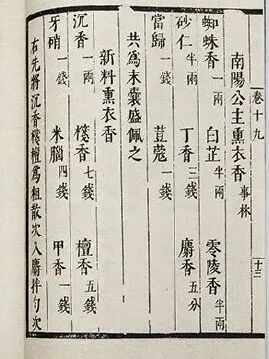 卷十九
十三
南陽公主熏衣香 事林
蜘蛛香一兩 白芷半兩 零陵香半兩
砂仁半兩 丁香三錢 麝香五分
當歸一錢 荳蔻一錢
共為末囊盛佩之
新料熏衣香
沉香一兩 棧香七錢 檀香五錢
牙硝一錢 米腦四錢 甲香一錢
右先將沉香棧檀為粗散次入麝拌勻次